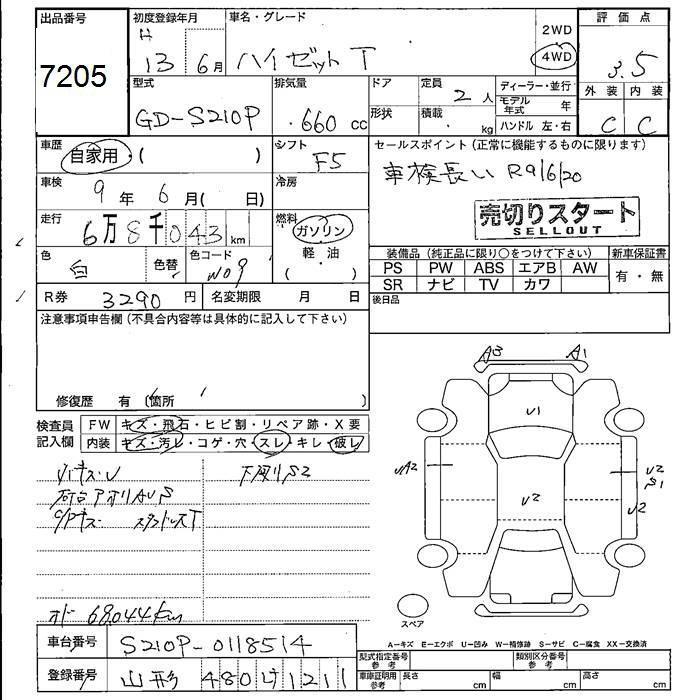 出品番号
7205
初度登録年月
H
13 6月
車名・グレード
ハイゼット T
2WD
4WD
評価点
3.5
外装 内装
C C
型式
GD-S210P
排気量
.660 cc
ドア
形状
定員
2人
積載
kg
ディーラー・並行
モデル年式 年
ハンドル 左・右
車歴
自家用・( )
シフト
F5
セールスポイント (正常に機能するものに限ります)
車検長い R9/6/20
売切りスタート
SELLOUT
車検
9年 6月( 日)
冷房
走行
6万8千043km
燃料
ガソリン
軽・油
( )
色
白
色替
色コード
W09
装備品 (純正品に限り○をつけて下さい)
新車保証書
PS PW ABS エアB AW
SR ナビ TV カワ
有・無
R券 3290円
名変期限 月 日
後日品
注意事項申告欄 (不具合内容等は具体的に記入して下さい)
修復歴 有 (箇所 )
検査員
記入欄
FW キズ・飛石・ヒビ割・リペア跡・X要
内装 キズ・汚レ・コゲ・穴・スレ・キレ・破レ
下廻りS2
A3 A1
U1
UA2
U2
U2
S1
U2
スペア
オド 68,044km
A―キズ E―エクボ U―凹み W―補修跡 S―サビ C―腐食 XX―交換済
車台番号
S210P-0118514
型式指定番号
参考
類別区分番号
参考
登録番号
山形 480け1211
車庫証明用
参考
長さ cm
幅 cm
高さ cm